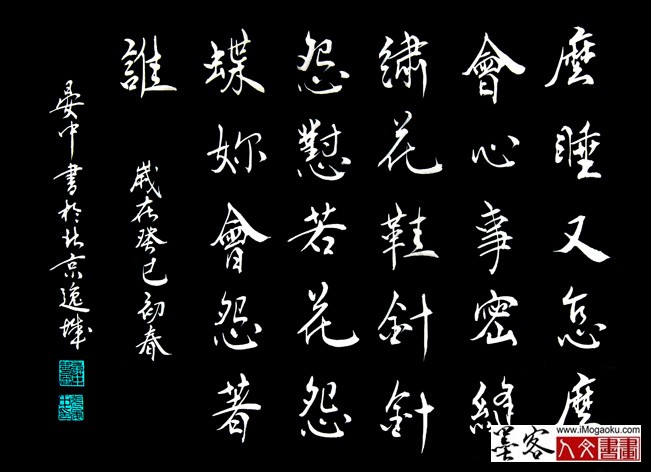 麼睡又怎麼
會心事密縫
繡花鞋針針
怨懟若花怨
蝶妳會怨著
誰
歲在癸巳初春
晏中書於北京逸城
墨客
www.iMogaoku.com
人文書畫